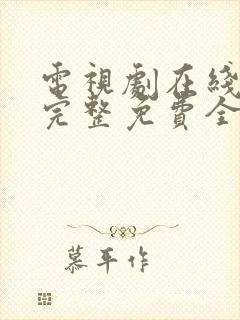 電視劇在綫
完整免費全
慕平作